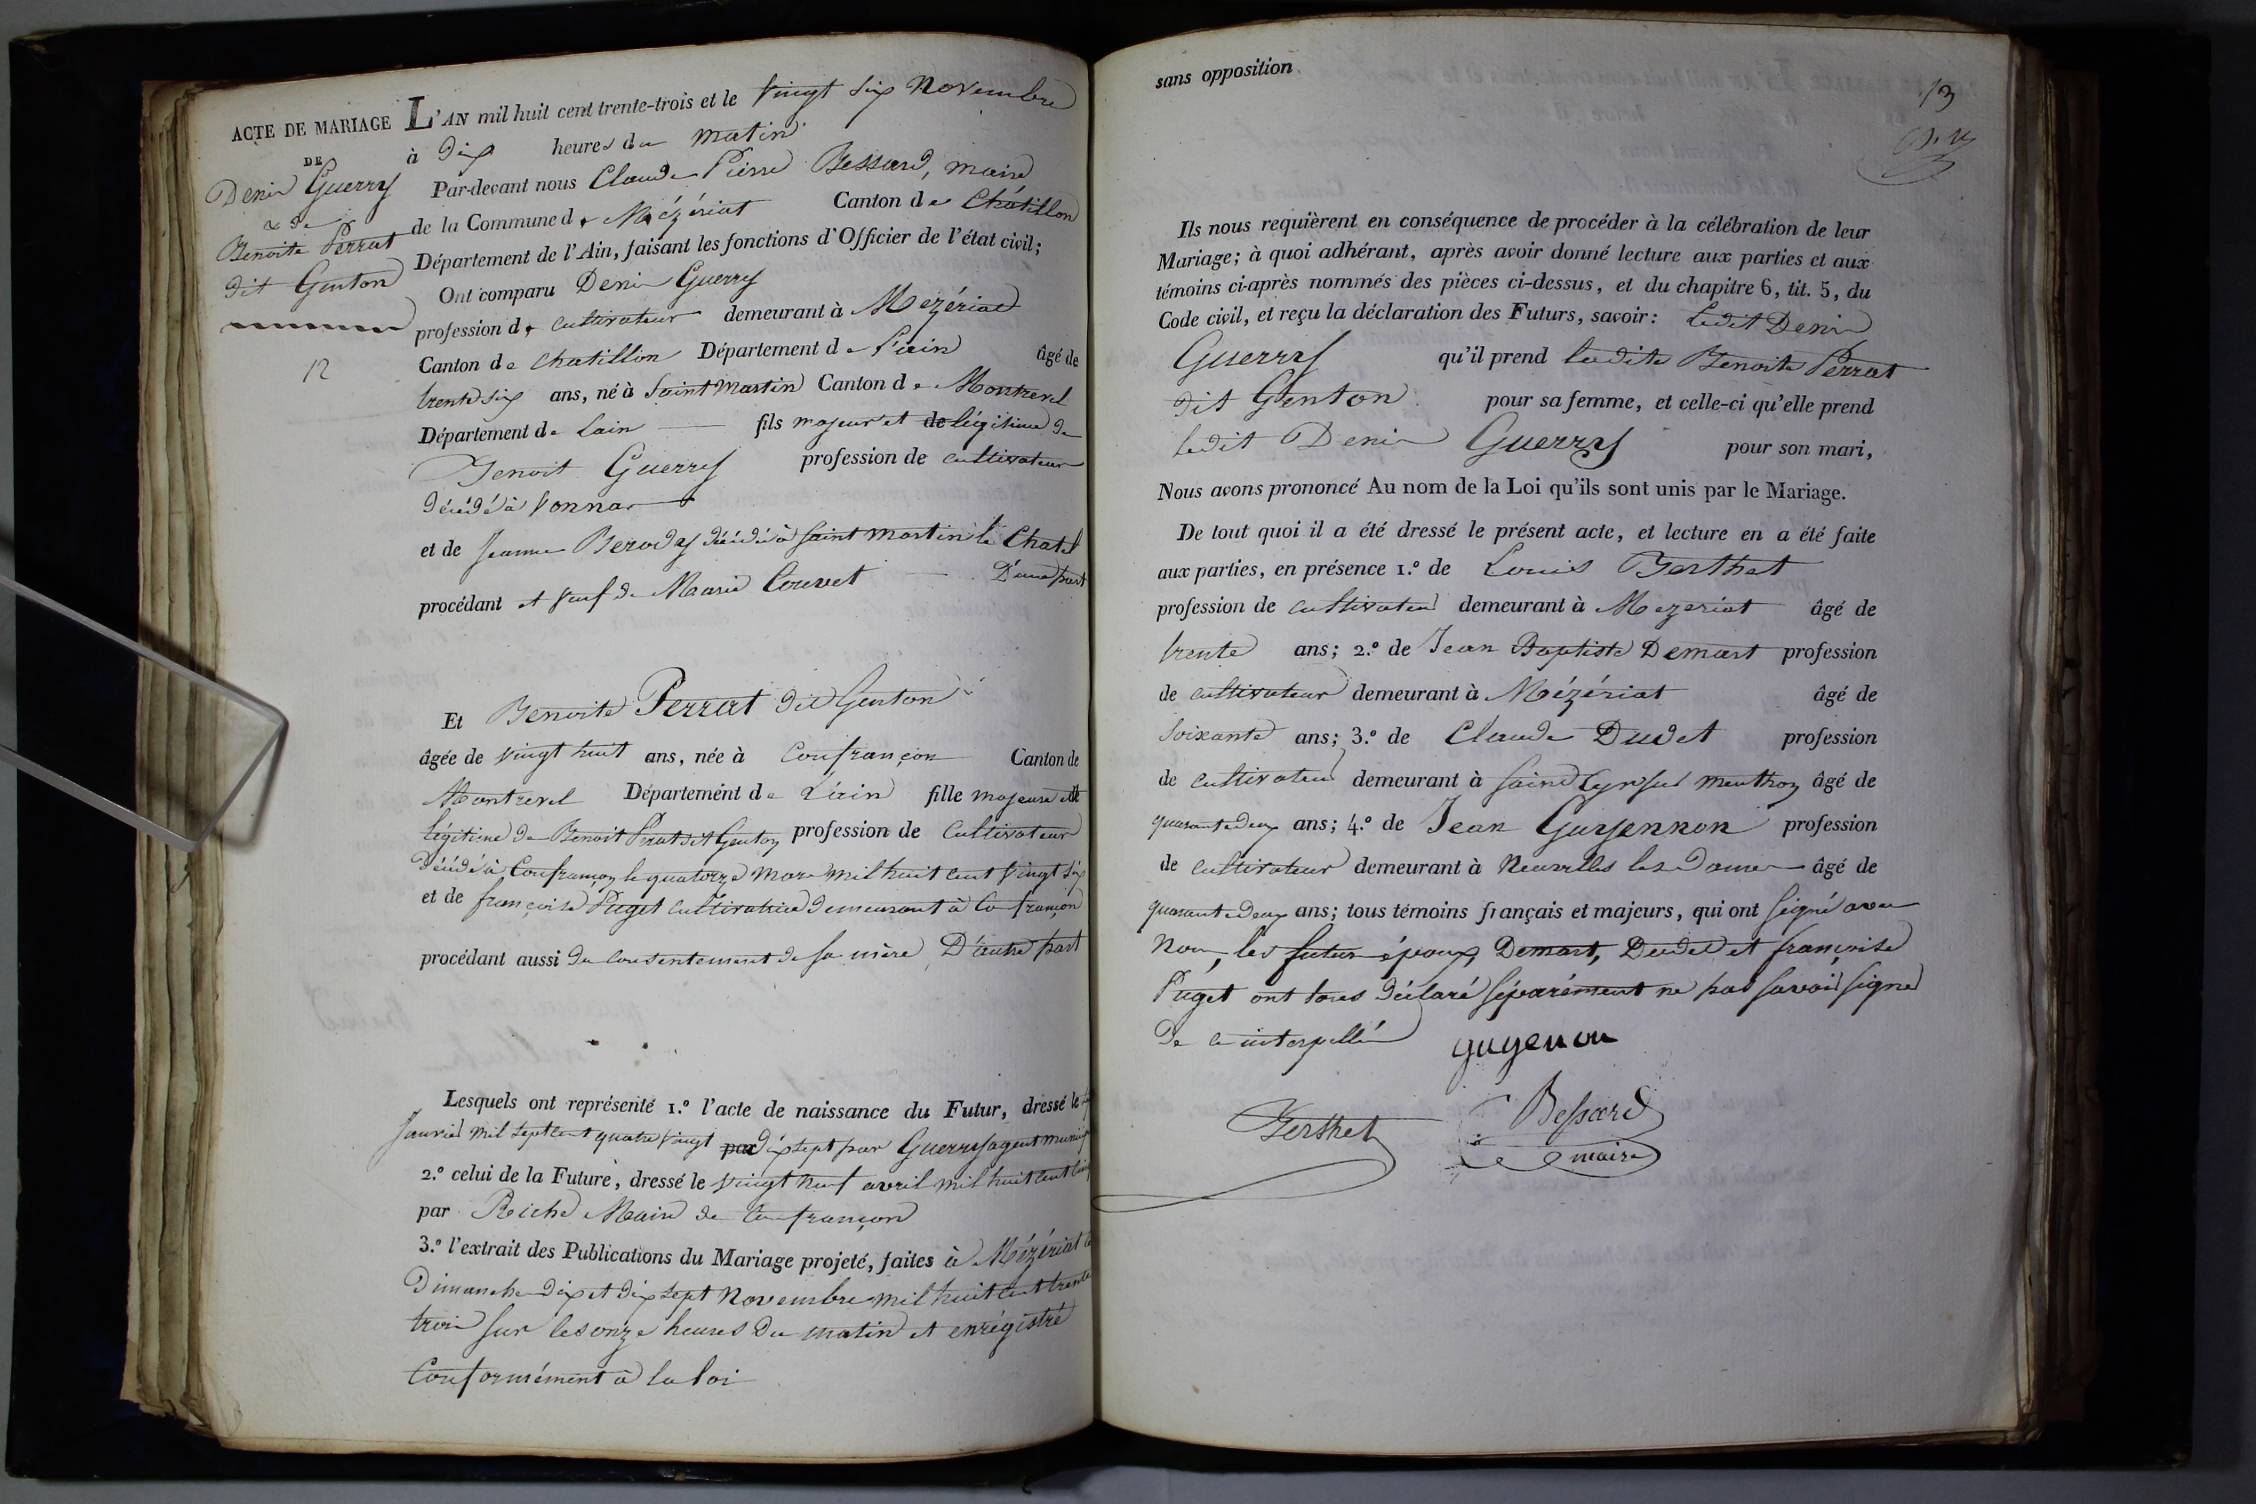 ACTE DE MARIAGE
DE
Denis Guerry
& de
Benoite Perrat
dit Genton
12
L'AN mil huit cent trente-trois et le vingt six Novembre
à dix heures du matin
Par-devant nous Claude Pierre Bessard, maire
de la Commune de Mézériat Canton de Châtillon
Département de l'Ain, faisant les fonctions d'Officier de l'état civil;
Ont comparu Denis Guerry
profession de cultivateur demeurant à Mezériat
Canton de Chatillon Département de l'ain âgé de
trente six ans, né à Saint Martin Canton de Montrevel
Département de Lain fils majeur et de légitime de
Benoit Guerry profession de cultivateur
décédé à Vonnas
et de Jeanne Beroday décédé à Saint Martin le Chatel
procédant et veuf de Marie Couvet D'une part
Et Benoite Perrat dit Genton
âgée de vingt huit ans, née à Confrançon Canton de
Montrevel Département de L'ain fille majeure et
légitime de Benoit Perat dit Genton profession de Cultivateur
décédé à Confrançon le quatorze Mars mil huit cent vingt six
et de françoise Puget cultivatrice demeurant à Confrançon
procédant aussi du consentement de sa mère, D'autre part
Lesquels ont représenté 1.º l'acte de naissance du Futur, dressé le
Janvier mil sept cent quatre vingt par dix sept par Guerry agent munici
2.º celui de la Future, dressé le vingt neuf avril mil huit cent cinq
par Reiche Maire de Confrançon
3.º l'extrait des Publications du Mariage projeté, faites à Mézériat le
Dimanche dix et dix sept Novembre mil huit cent trente
trois sur les onze heures du matin et enrégistré
Conformément à la loi
sans opposition
13
Ils nous requièrent en conséquence de procéder à la célébration de leur
Mariage; à quoi adhérant, après avoir donné lecture aux parties et aux
témoins ci-après nommés des pièces ci-dessus, et du chapitre 6, tit. 5, du
Code civil, et reçu la déclaration des Futurs, savoir: ledit Denis
Guerry qu'il prend ladite Benoite Perrat
dit Genton pour sa femme, et celle-ci qu'elle prend
ledit Denis Guerry pour son mari,
Nous avons prononcé Au nom de la Loi qu'ils sont unis par le Mariage.
De tout quoi il a été dressé le présent acte, et lecture en a été faite
aux parties, en présence 1.º de Louis Berthet
profession de cultivateur demeurant à Mezeriat âgé de
trente ans; 2.º de Jean Baptiste Demart profession
de cultivateur demeurant à Mézériat âgé de
Soixante ans; 3.º de Claude Dudet profession
de cultivateur demeurant à Saint Cyr sur Menthon âgé de
quarante deux ans; 4.º de Jean Guyennon profession
de cultivateur demeurant à Neuvilles les Dames âgé de
quarante deux ans; tous témoins français et majeurs, qui ont signé avec
Nous, les futurs époux, Demart, Dudet et françoise
Puget ont tous déclaré séparément ne pas savoir signer
De ce interpellés
guyenon
Berthet
Bessard
maire